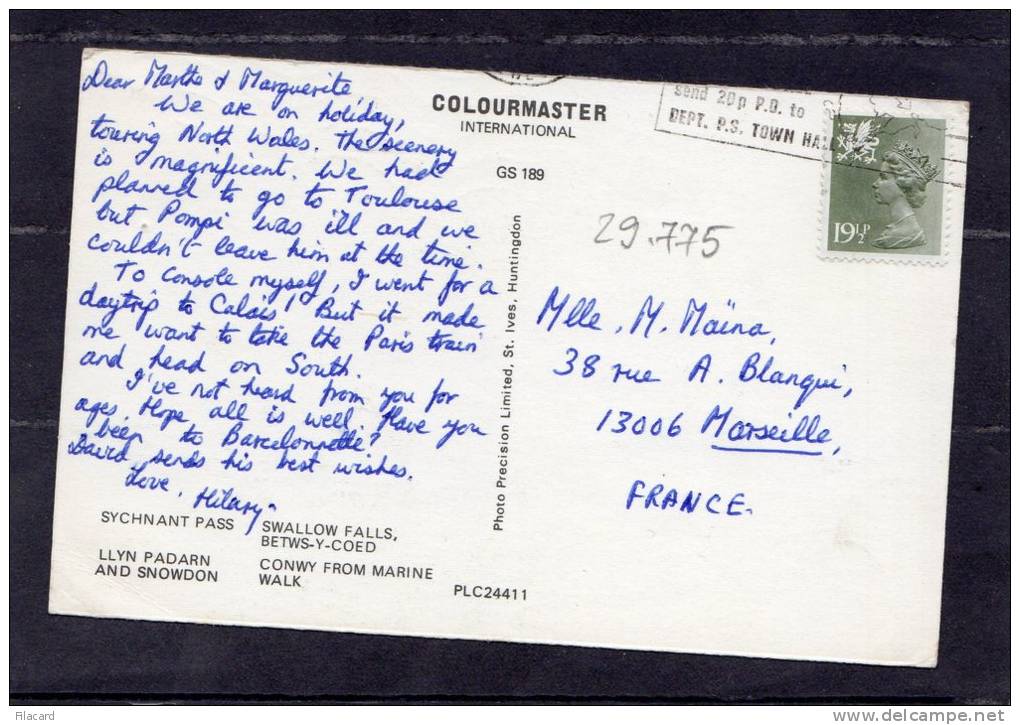 Dear Martha & Marguerite
We are on holiday,
touring North Wales. The scenery
is magnificent. We had
planned to go to Toulouse
but Pompi was ill and we
couldn't leave him at the time.
To console myself, I went for a
daytrip to Calais! But it made
me want to take the Paris train
and head on South.
I've not heard from you for
ages. Hope all is well. Have you
been to Barcelonnette?
David sends his best wishes.
Love, Hilary.
SYCHNANT PASS
SWALLOW FALLS,
BETWS-Y-COED
LLYN PADARN
AND SNOWDON
CONWY FROM MARINE
WALK
PLC24411
COLOURMASTER
INTERNATIONAL
GS 189
Photo Precision Limited, St. Ives, Huntingdon
send 20p P.O. to
DEPT. P.S. TOWN HALL
19½P
29.775
Mlle. M. Maïna,
38 rue A. Blanqui,
13006 Marseille,
FRANCE.
Filacard
www.delcampe.net